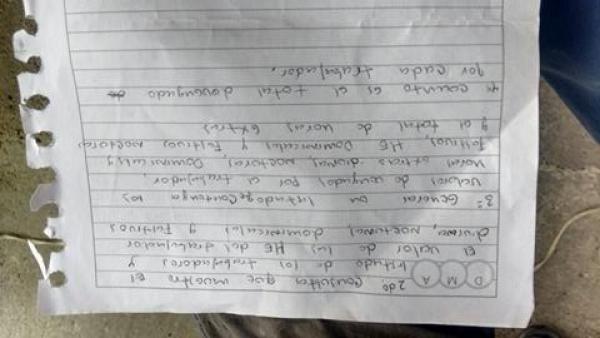 D M A
2do consulta que muestre el
listado de los trabajadores y
el valor de las HE del trabajador
diurna, nocturna, dominicales y festivos
3º Generar un listado que contenga los
valores devengados por el trabajador,
horas extras diurnas, nocturnas, Dominicales y
festivos, HE Dominicales y Festivos nocturnas
y el total de horas extras
4º cuanto es el total devengado
por cada trabajador.